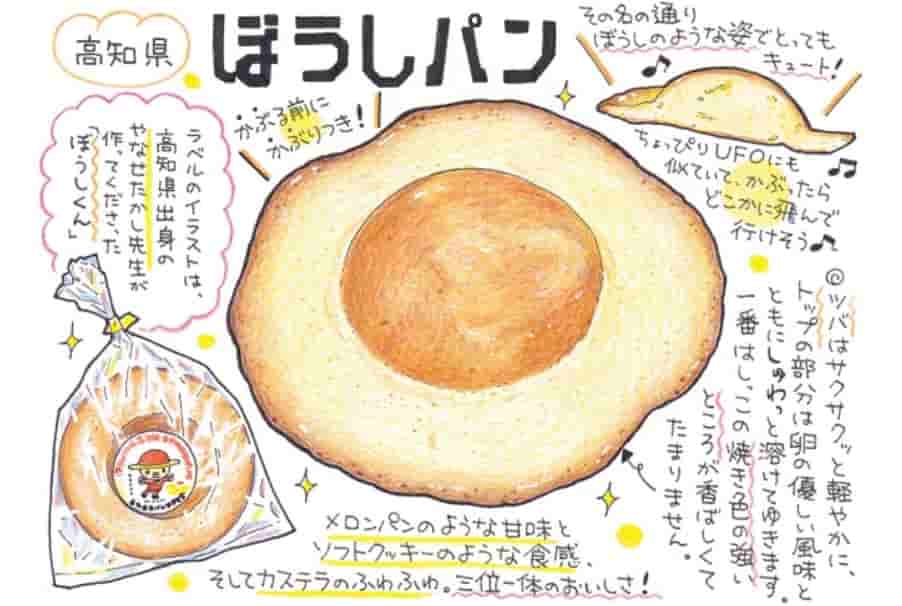 高知県
ぼうしパン
その名の通り
ぼうしのような姿でとっても
キュート!
かぶる前に
かぶりつき!
ちょっぴりUFOにも
似ていて、かぶったら
どこかに飛んで
行けそう♪
ラベルのイラストは、
高知県出身の
やなせたかし先生が
作ってくださった
「ぼうしくん」
◎ツバはサクサクッと軽やかに、
トップの部分は卵の優しい風味と
ともにしゅわっと溶けてゆきます。
一番はしっこの焼き色の強い
ところが香ばしくて
たまりません。
メロンパンのような甘味と
ソフトクッキーのような食感、
そしてカステラのふわふわ。三位一体のおいしさ!